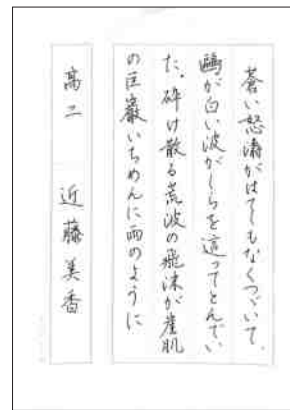 蒼い怒濤がはてしもなくつづいて、
鷗が白い波がしらを這ってとんでい
た。砕け散る荒波の飛沫が崖肌
の巨巌いちめんに雨のように
高二 近藤美香